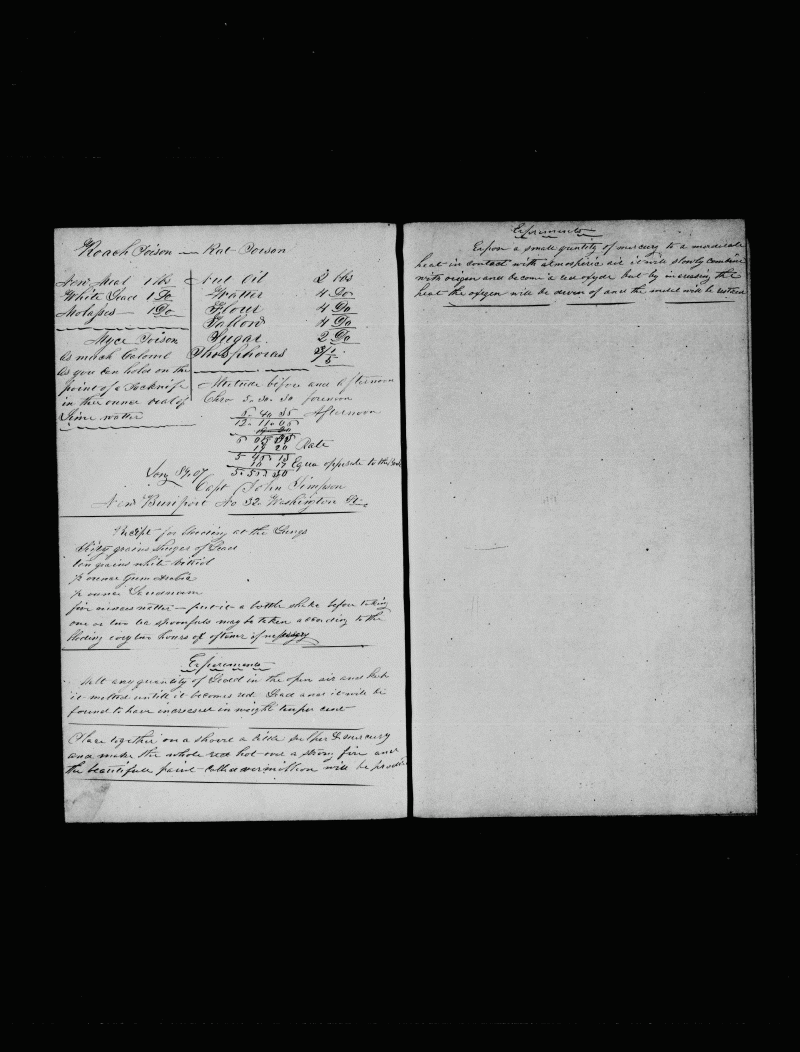 Roach Poison — Rat Poison
Meal 1 lbs
White Lead 1 Do
Molasses — 1 Do
Myce Poison
As much Calomel
as you can holde on the
point of a
in ther ounce of
water
Nut Oil 2 lbs
Watter 4 Do
Flour 4 Do
Tallow 4 Do
Sugar 2 Do
Phosphoras
before and afternoon
Chro 5. 30. 30 forenoon
5 40 35 Afternoon
Rate
Equa opposite to the
5. 55 30
Capt John Simpson
New Buriport No 32 Washington St.
Recipt for bleeding at the Lungs
thirty grains Suger of Lead
ten grains white vitriol
½ ounce Gum Arabic
½ ounce
five ounces watter — put it a bottle shake before taking
one or two tea spoonfuls may be taken according to the
bleding every two hours of oftener if nessesary
Experements
Melt any quantity of Lead in the open air and keep
it melted untill it becomes red Lead and it will be
found to have increased in weight ten per cent
Place together on a shovel a little sulher & mercury
and make the whole red hot over a strong fire and
the beautifull paint called vermillion will be
Experements
Expose a small quintity of mercury to a moderate
heat in contact with atmospheric air it will slowly combine
with oxigen and becom a red oxyde but by increasing the
heat the oxigen will be driven of and the metel will be restored